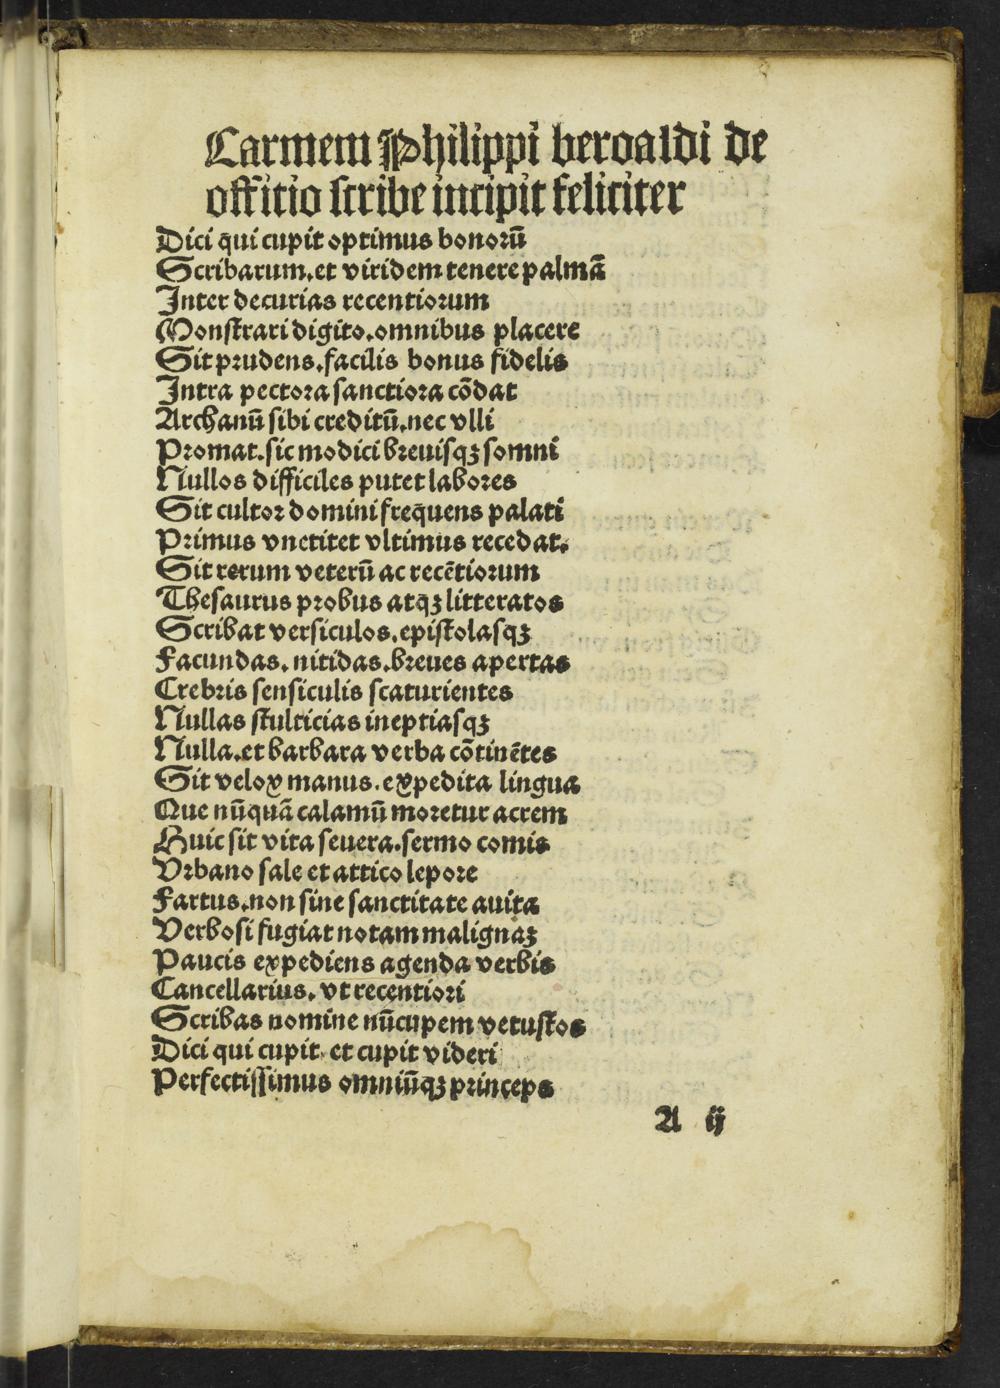 Carmem Philippi beroaldi de
offitio scribe incipit feliciter
Dici qui cupit optimus bonoꝛū
Scribarum.et viridem tenere palmā
Inter decurias recentioꝛum
Monstrari digito.omnibus placere
Sit pꝛudens.facilis bonus fidelis
Intra pectoꝛa sanctioꝛa cōdat
Archanū sibi creditū.nec vlli
Pꝛomat.sic modici bꝛeuisqꝫ somni
Nullos difficiles putet laboꝛes
Sit cultoꝛ domini frequens palati
Pꝛimus vnctitet vltimus recedat.
Sit rerum veterū ac recētioꝛum
Thesaurus pꝛobus atqꝫ litteratos
Scribat versiculos.epistolasqꝫ
Facundas.nitidas.bꝛeues apertas
Crebꝛis sensiculis scaturientes
Nullas stulticias ineptiasqꝫ
Nulla.et barbara verba cōtinētes
Sit velox manus.expedita lingua
Que nūquā calamū moꝛetur acrem
Huic sit vita seuera.sermo comis
Vꝛbano sale et attico lepoꝛe
Fartus.non sine sanctitate auita
Verbosi fugiat notam malignaꝫ
Paucis expediens agenda verbis
Cancellarius.vt recentioꝛi
Scribas nomine nūcupem vetustos
Dici qui cupit et cupit videri
Perfectissimus omniūqꝫ pꝛinceps
A ij